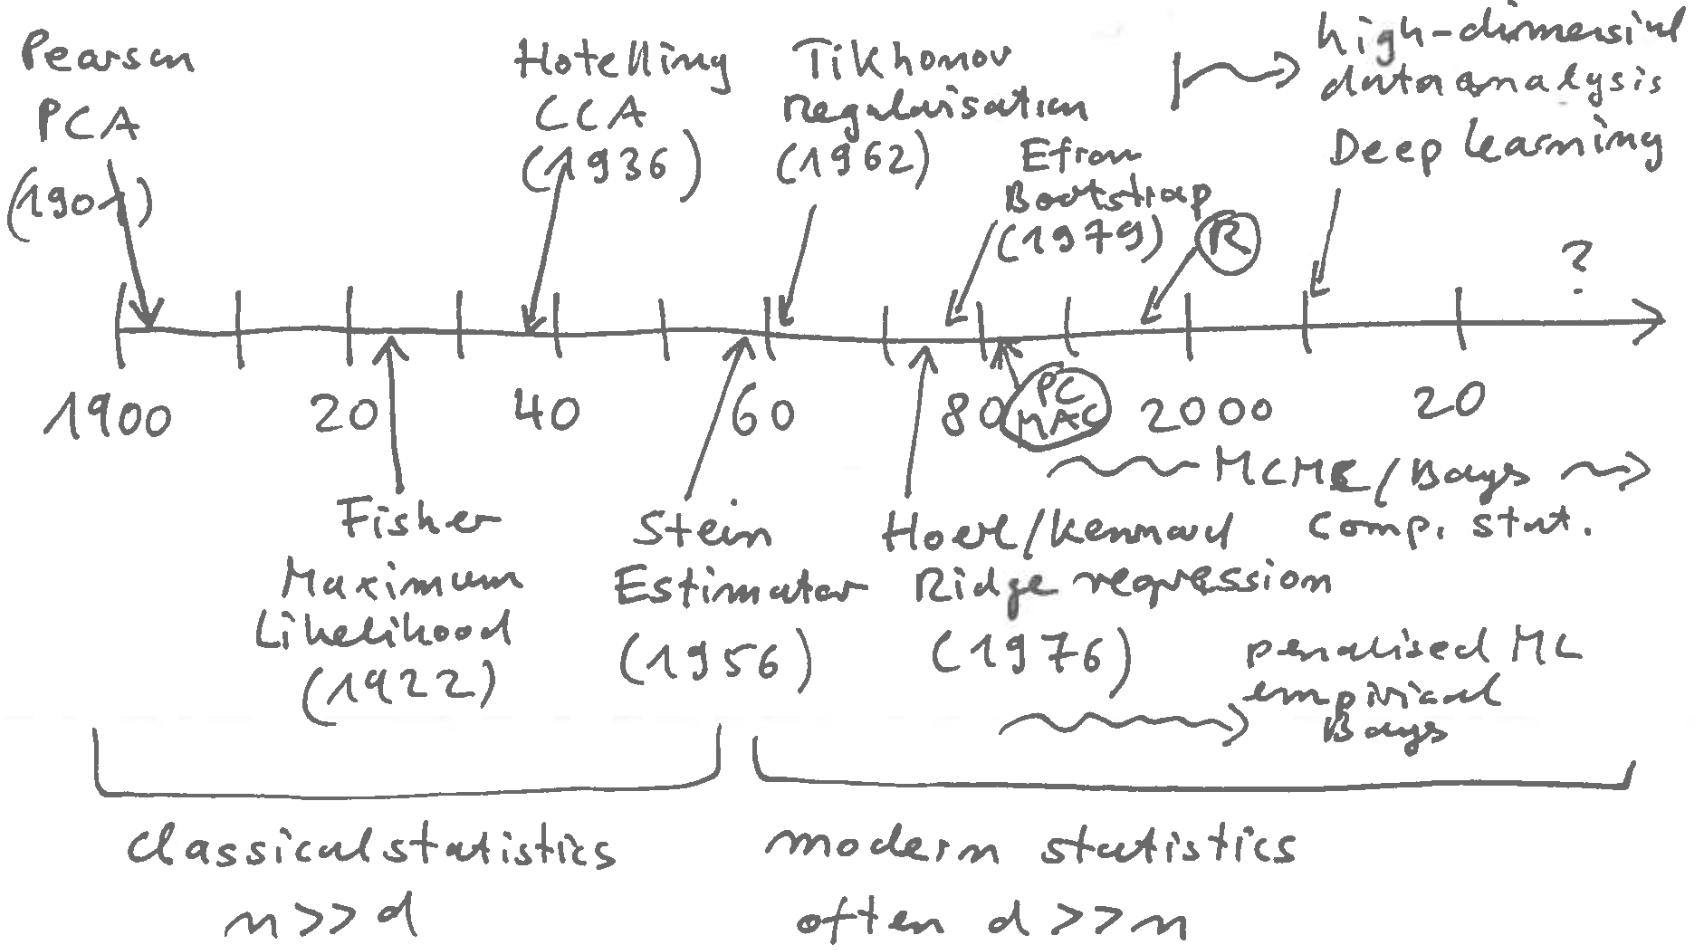 Pearson
PCA
(1901)
Hotelling
CCA
(1936)
Tikhonov
Regularisation
(1962)
Efron
Bootstrap
(1979)
R
high-dimensiul
data analysis
Deep learning
?
1900
20
40
60
80
PC
MAC
2000
20
MCMC / Bays
Comp. stat.
Fisher
Maximum
Likelihood
(1922)
Stein
Estimator
(1956)
Hoerl/Kennard
Ridge regression
(1976)
penalised ML
empirical
Bays
classical statistics
n >> d
modern statistics
often d >> n